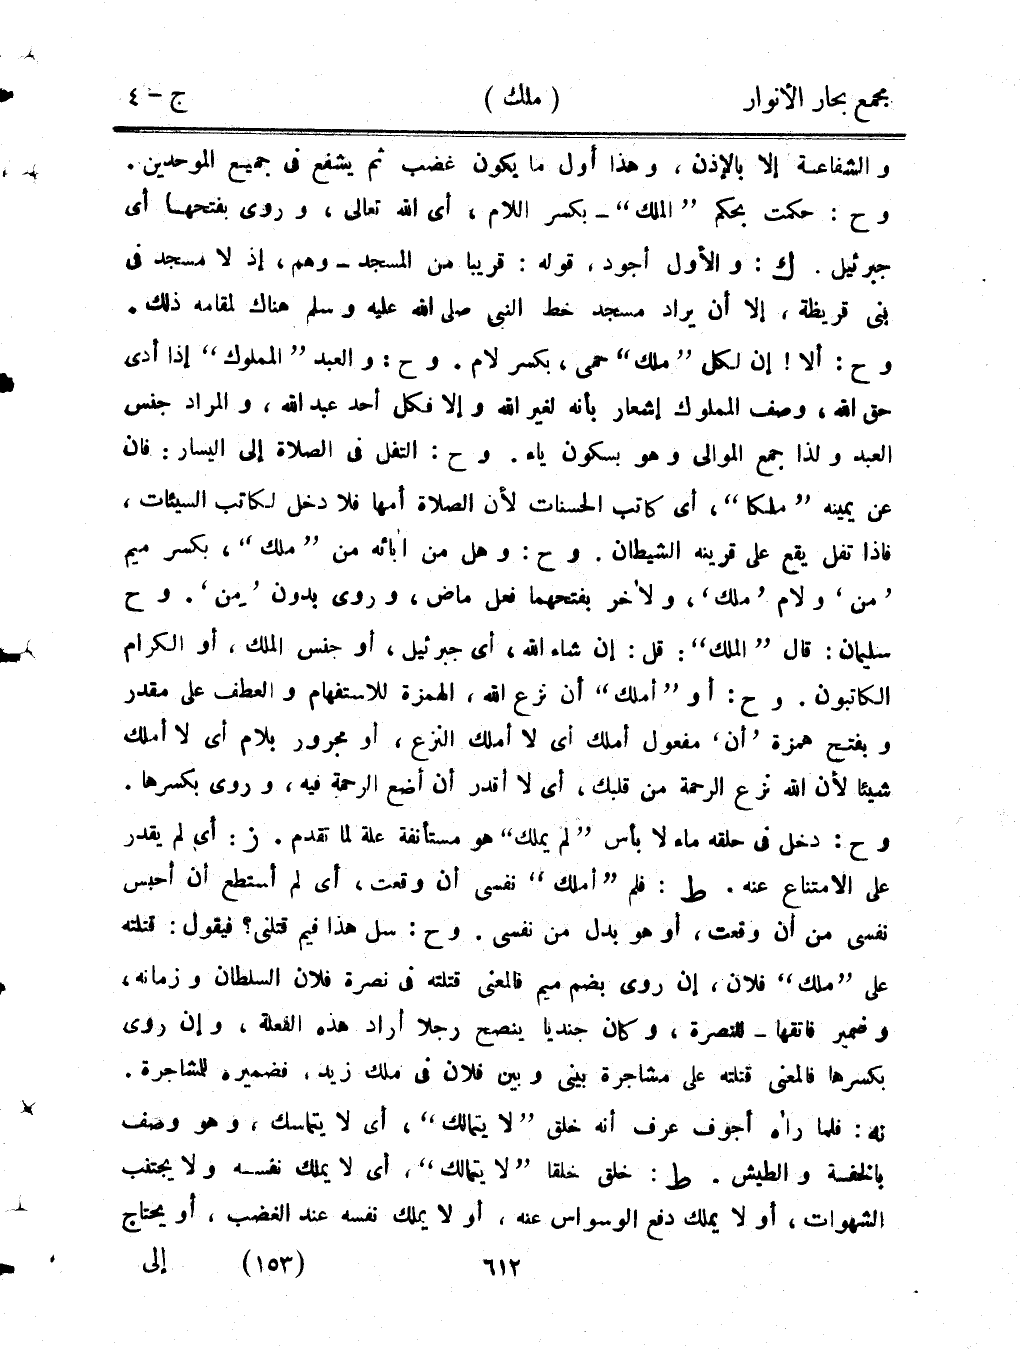 مجمع بحار الأنوار ( ملك ) ج - ٤
و الشفاعة إلا بالإذن ، و هذا أول ما يكون غضب ثم يشفع فى جميع الموحدين .
و ح : حكمت بحكم ”الملك“ ـ بكسر اللام ، أى الله تعالى ، و روى بفتحها أى
جبرئيل . ك : و الأول أجود ، قوله : قريبا من المسجد ـ وهم ، إذ لا مسجد فى
بنى قريظة ، إلا أن يراد مسجد خط النبى صلى الله عليه و سلم هناك لمقامه ذلك .
و ح : ألا ! إن لكل ”ملك“ حمى ، بكسر لام . و ح : و العبد ”المملوك“ إذا أدى
حق الله ، وصف المملوك إشعار بأنه لغير الله و إلا فكل أحد عبد الله ، و المراد جنس
العبد و لذا جمع الموالى و هو بسكون ياء . و ح : التفل فى الصلاة إلى اليسار : فان
عن يمينه ”ملكا“ ، أى كاتب الحسنات لأن الصلاة أمها فلا دخل لكاتب السيئات ،
فاذا تفل يقع على قرينه الشيطان . و ح : و هل من اٰبائه من ”ملك“ ، بكسر ميم
’من‘ و لام ’ملك‘ ، و لاٰخر بفتحهما فعل ماض ، و روى بدون ’من‘ . و ح
سليمان : قال ”الملك“ : قل : إن شاء الله ، أى جبرئيل ، أو جنس الملك ، أو الكرام
الكاتبون . و ح : أ و ”أملك“ أن نزع الله ، الهمزة للاستفهام و العطف على مقدر
و بفتح همزة ’أن‘ مفعول أملك أى لا أملك النزع ، أو مجرور بلام أى لا أملك
شيئا لأن الله نزع الرحمة من قلبك ، أى لا أقدر أن أضع الرحمة فيه ، و روى بكسرها .
و ح : دخل فى حلقه ماء لا بأس ”لم يملك“ هو مستأنفة علة لما تقدم . ز : أى لم يقدر
على الامتناع عنه . ط : فلم ”أملك“ نفسى أن وقعت ، أى لم أستطع أن أحبس
نفسى من أن وقعت ، أو هو بدل من نفسى . و ح : سل هذا فيم قتلنى ؟ فيقول : قتلته
على ”ملك“ فلان ، إن روى بضم ميم فالمعنى قتلته فى نصرة فلان السلطان و زمانه ،
و ضمير فاتقها ـ للنصرة ، و كان جنديا ينصح رجلا أراد هذه الفعلة ، و إن روى
بكسرها فالمعنى قتلته على مشاجرة بينى و بين فلان فى ملك زيد ، فضميره للمشاجرة .
نه : فلما راٰه أجوف عرف أنه خلق ”لا يتمالك“ ، أى لا يتماسك ، و هو وصف
بالخفة و الطيش . ط : خلق خلقا ”لا يتمالك“ ، أى لا يملك نفسه و لا يجتنب
الشهوات ، أو لا يملك دفع الوسواس عنه ، أو لا يملك نفسه عند الغضب ، أو يحتاج
٦١٢ (١٥٣) إلى